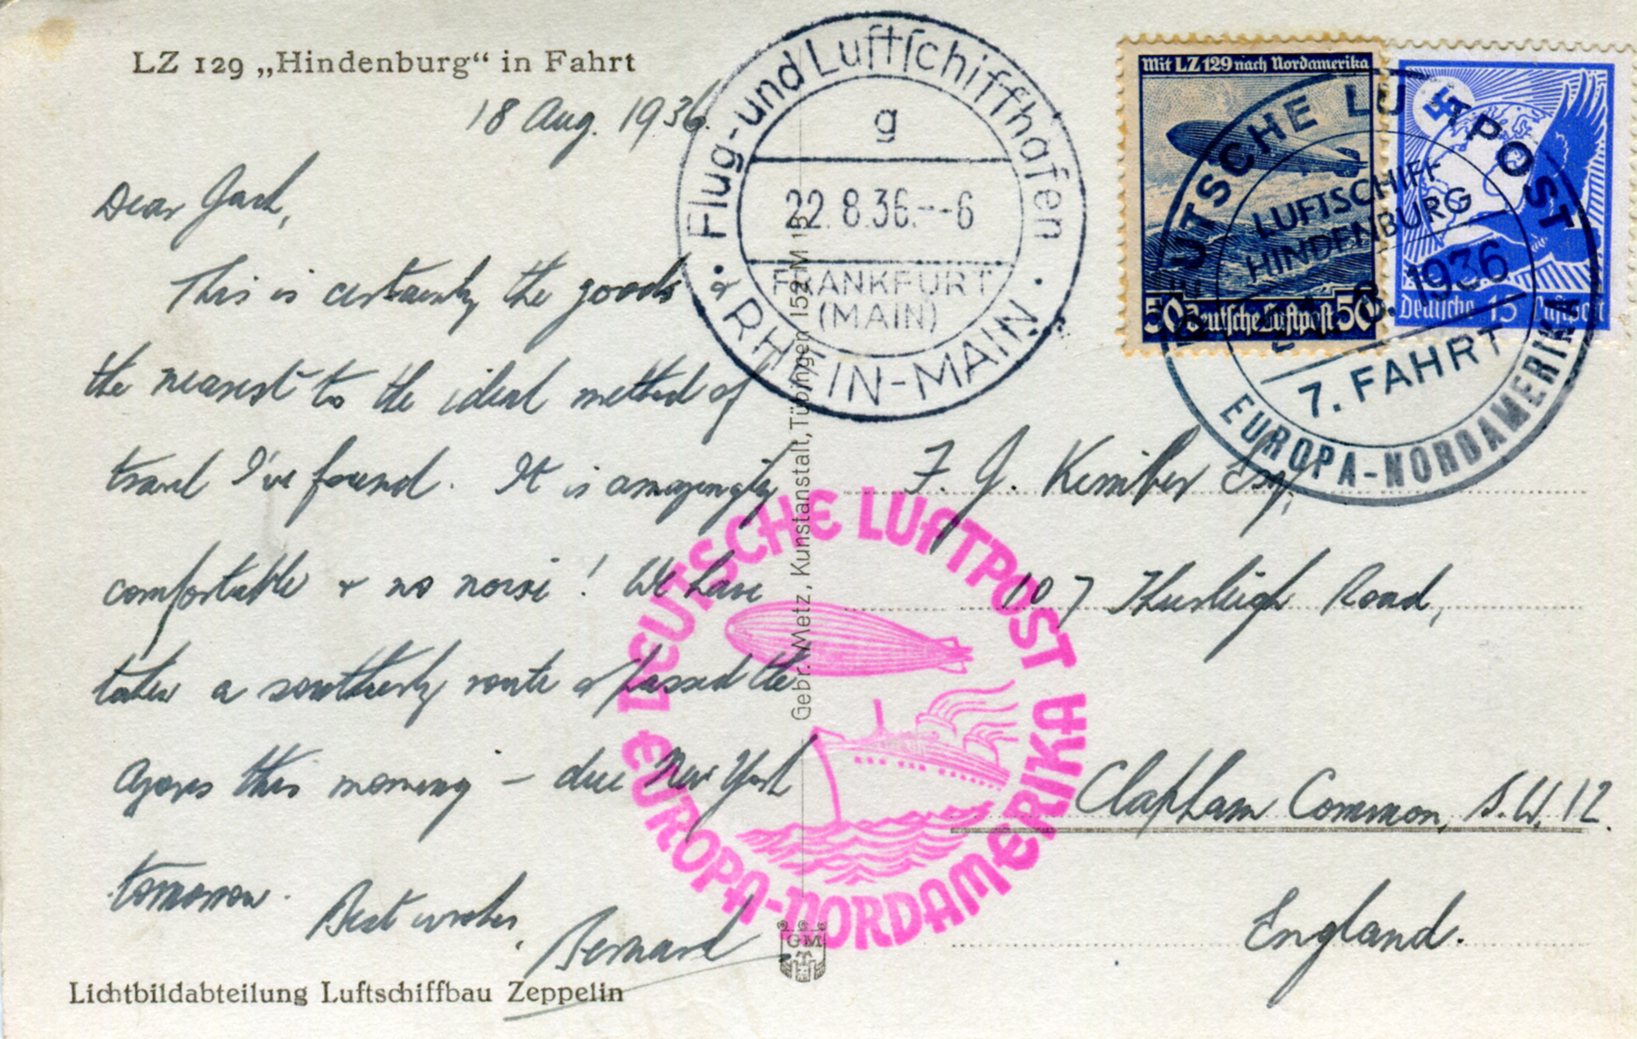 LZ 129 „Hindenburg“ in Fahrt
18 Aug. 1936.
Dear Jack,
This is certainly the goods &
the nearest to the ideal method of
travel I've found. It is amazingly
comfortable & no noise! We have
taken a southerly route & passed the
Azores this morning – due New York
tomorrow.
Best wishes,
Bernard
Lichtbildabteilung Luftschiffbau Zeppelin
Flug-und Luftschiffhafen
g
22.8.36.--6
FRANKFURT
(MAIN)
RHEIN-MAIN
Gebr. Metz, Kunstanstalt, Tübingen
GM
T
Mit LZ 129 nach Nordamerika
50 Deutsche Luftpost 50
Deutsche 15 Luftpost
DEUTSCHE LUFTPOST
LUFTSCHIFF
HINDENBURG
8.1936
7. FAHRT
EUROPA-NORDAMERIKA
DEUTSCHE LUFTPOST
EUROPA-NORDAMERIKA
F. J. Esq,
107 Road,
Clapham Common, S.W.12.
England.